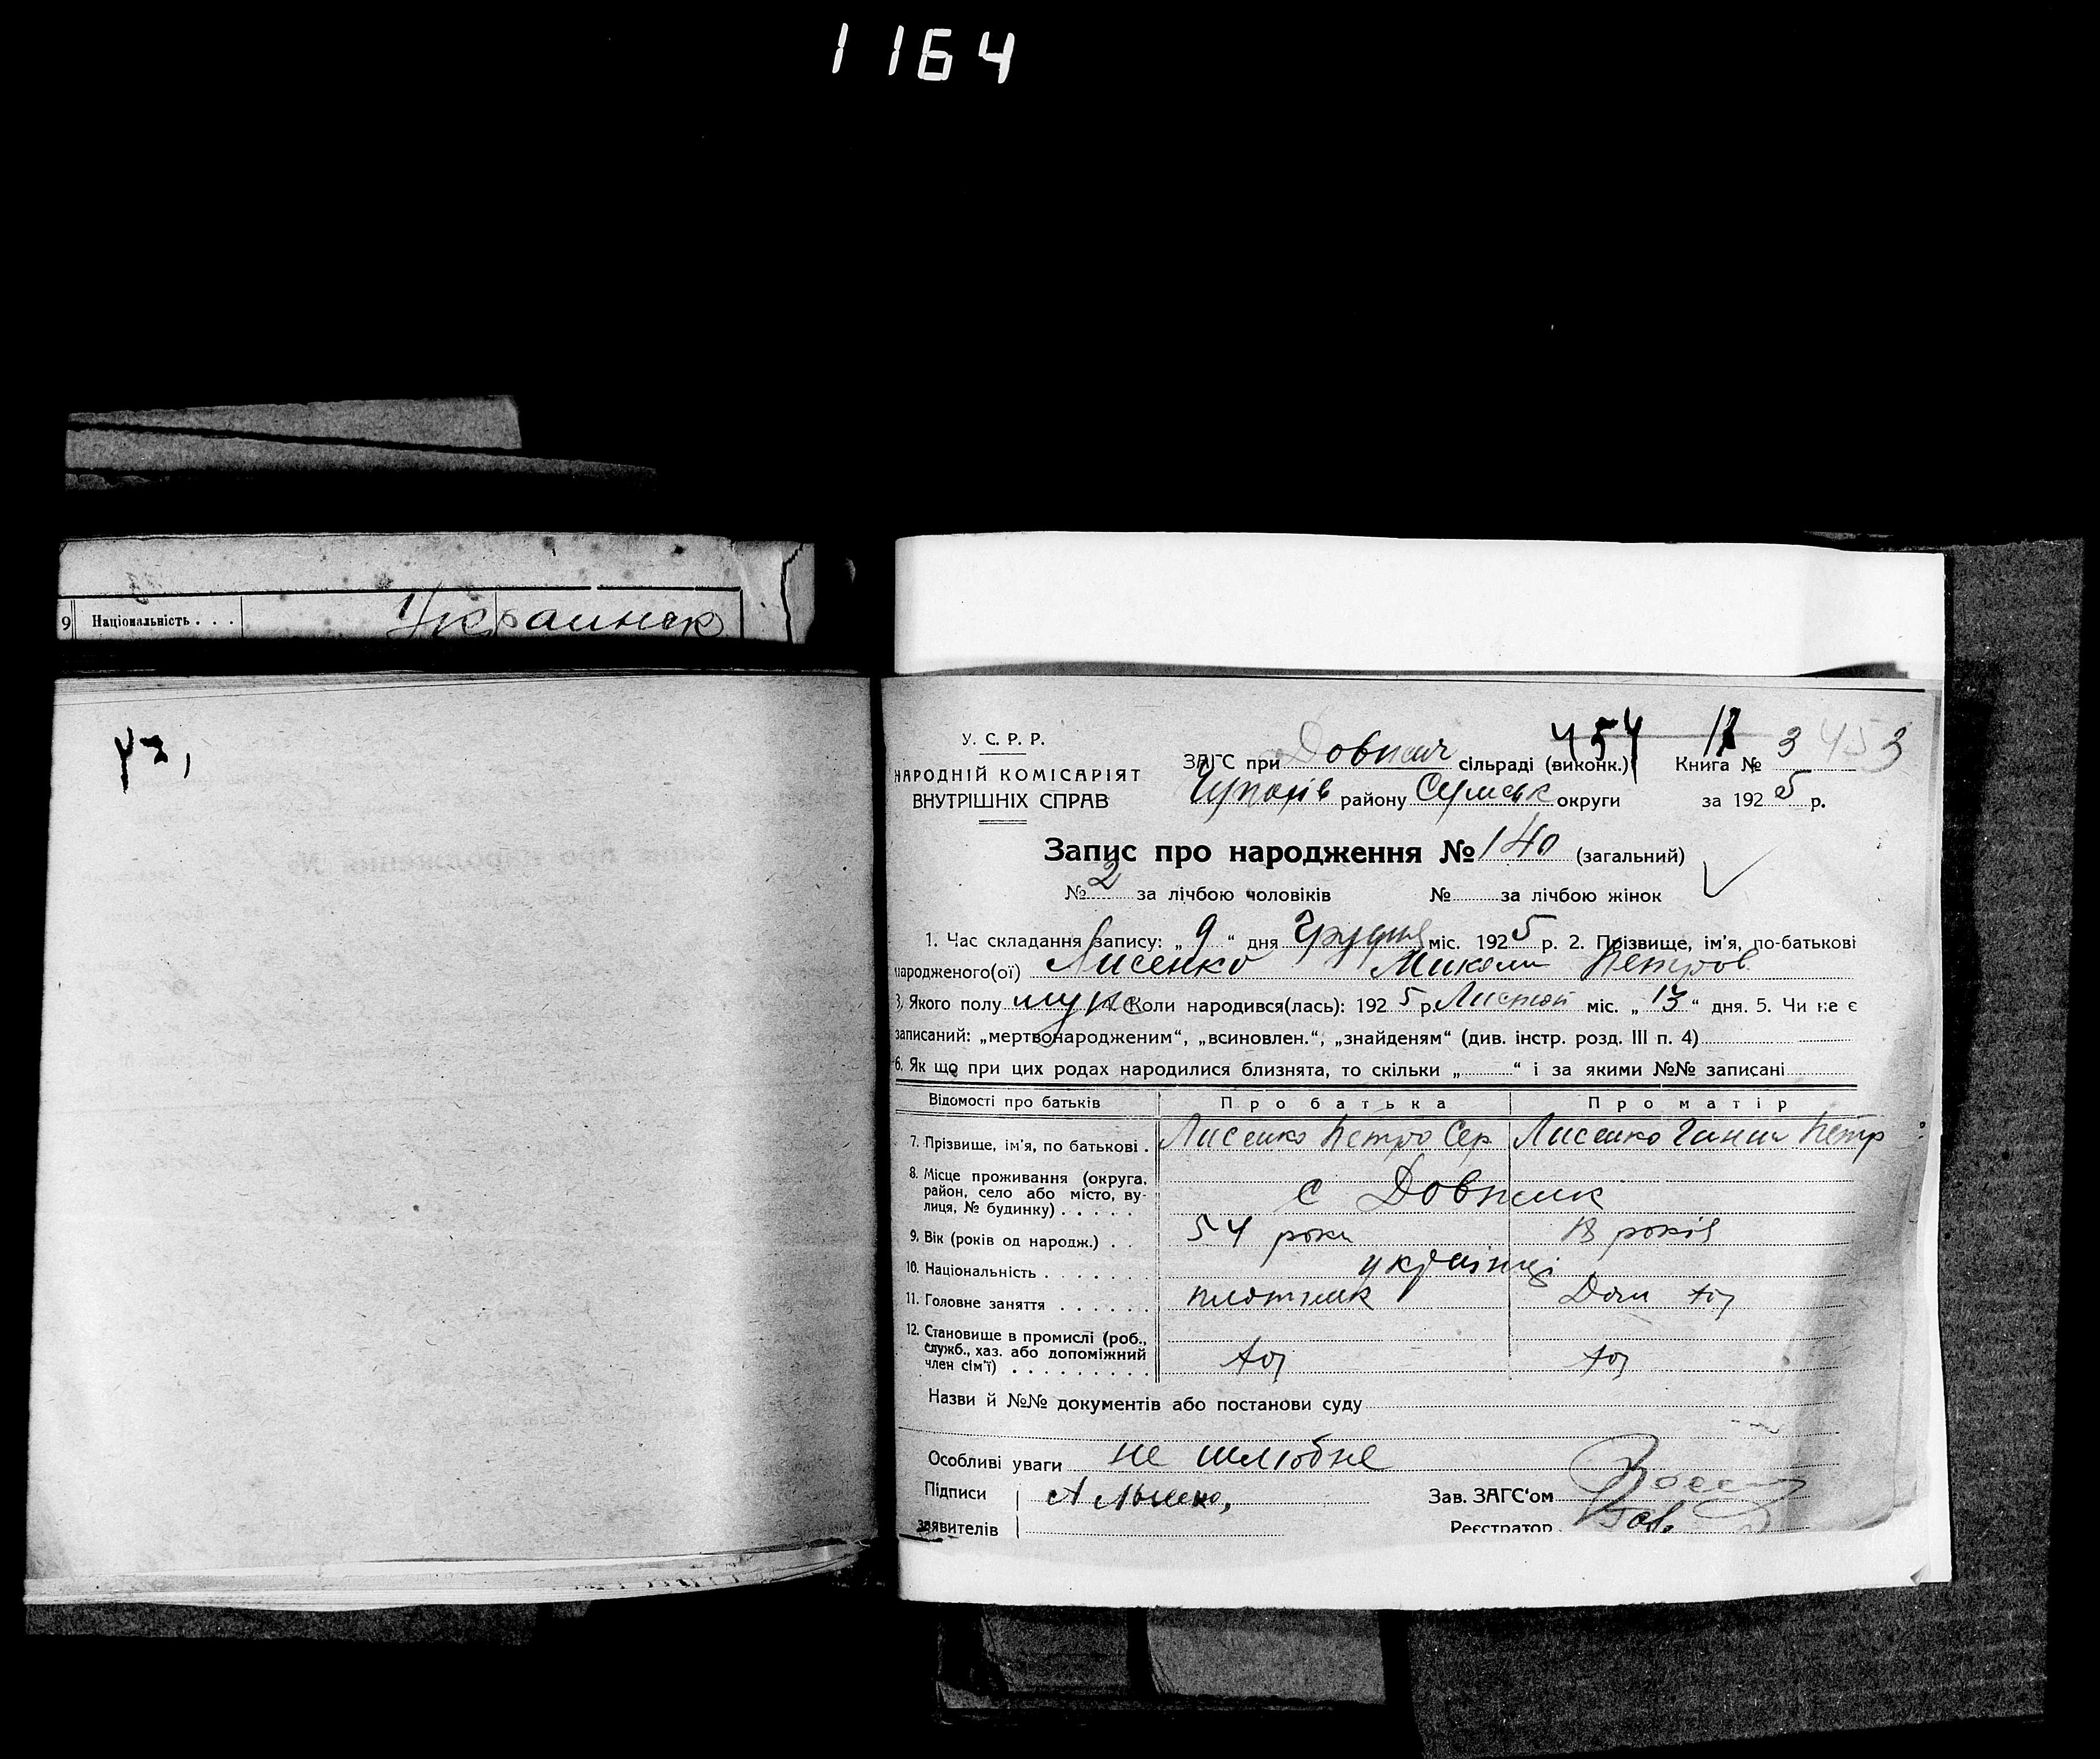 1164
9 Національність . . . Украинск
У. С. Р. Р.
НАРОДНІЙ КОМІСАРІЯТ
ВНУТРІШНІХ СПРАВ
454 3 453
ЗАГС при Довжич сільраді (виконк.) Книга №
району Сумськ округи за 1925 р.
Запис про народження № 140 (загальний)
№ 2 за лічбою чоловіків № за лічбою жінок
1. Час складання запису: „ 9 “ дня Грудня міс. 1925 р. 2. Прізвище, ім'я, по-батькові
народженого(ої) Лисенко Микола Петров
3. Якого полу муж Коли народився(лась): 1925 р. Листоп міс. „ 13 “ дня. 5. Чи не є
записаний: „мертвонародженим“, „всиновлен.“, „знайденям“ (див. інстр. розд. III п. 4)
6. Як що при цих родах народилися близнята, то скільки „ “ і за якими №№ записані
Відомості про батьків Про батька Про матір
7. Прізвище, ім'я, по батькові . Лисенко Петро Сер. Лисенко Ганна Петр
8. Місце проживання (округа,
район, село або місто, ву-
лиця, № будинку) . . . . . с Довжик
9. Вік (років од народж.) . . 54 роки 18 років
10. Національність . . . . . . . українці
11. Головне заняття . . . . . . плотник Дом
12. Становище в промислі (роб.,
служб., хаз. або допоміжний
член сім'ї) . . . . . . . . .
Назви й №№ документів або постанови суду
Особливі уваги не шлюбне
Підписи А Лысенко,
Зав. ЗАГС'ом
заявителів
Реєстратор